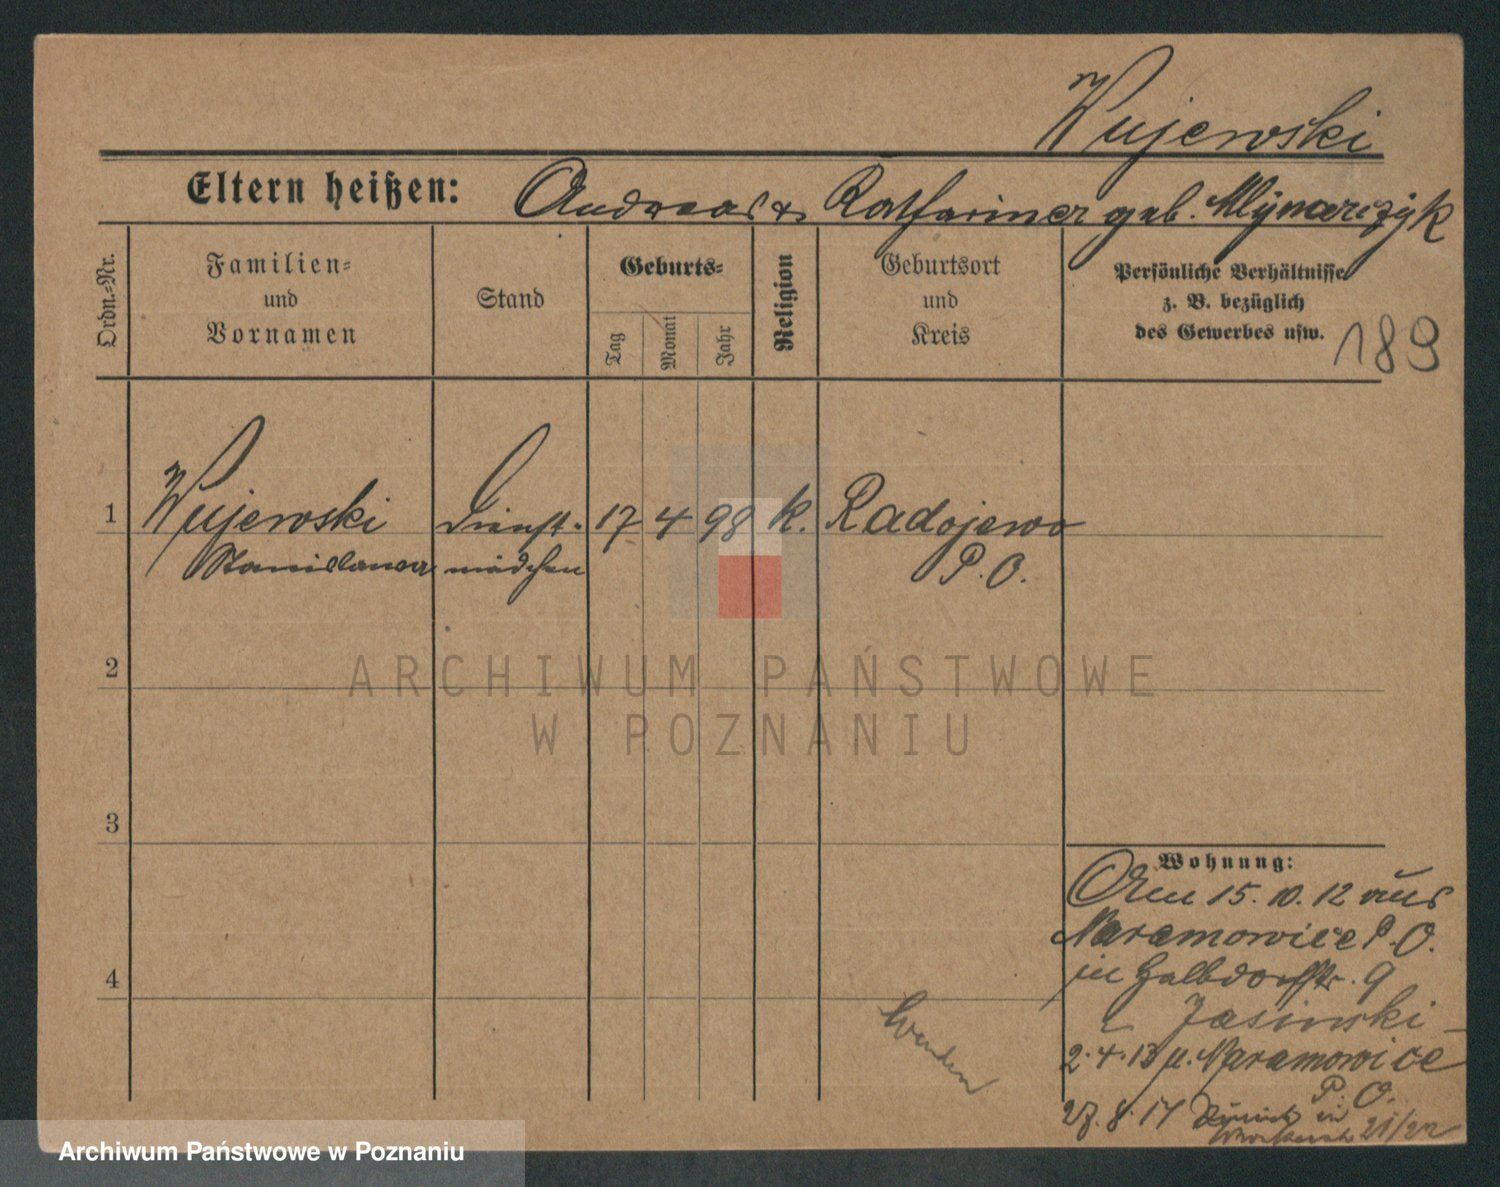 Wujewski
Eltern heißen: Andreas u Katharina geb. Mlynarczyk
Ordn.-Nr.
Familien-
und
Vornamen
Stand
Geburts-
Tag
Monat
Jahr
Religion
Geburtsort
und
Kreis
Persönliche Verhältnisse
z. B. bezüglich
des Gewerbes usw.
189
1 Wujewski Dienst- 17 4 98 k. Radojewo
Stanislawa mädchen P. O.
2
ARCHIWUM PAŃSTWOWE
W POZNANIU
3
4
Wohnung:
Am 15. 10. 12 aus
Naramowice P. O.
in Halbdorfstr. 9
Jasinski
2. 4. 13 n. Naramowice
P. O.
27. 8. 17 Zurück in
21/22
Wenden
Archiwum Państwowe w Poznaniu